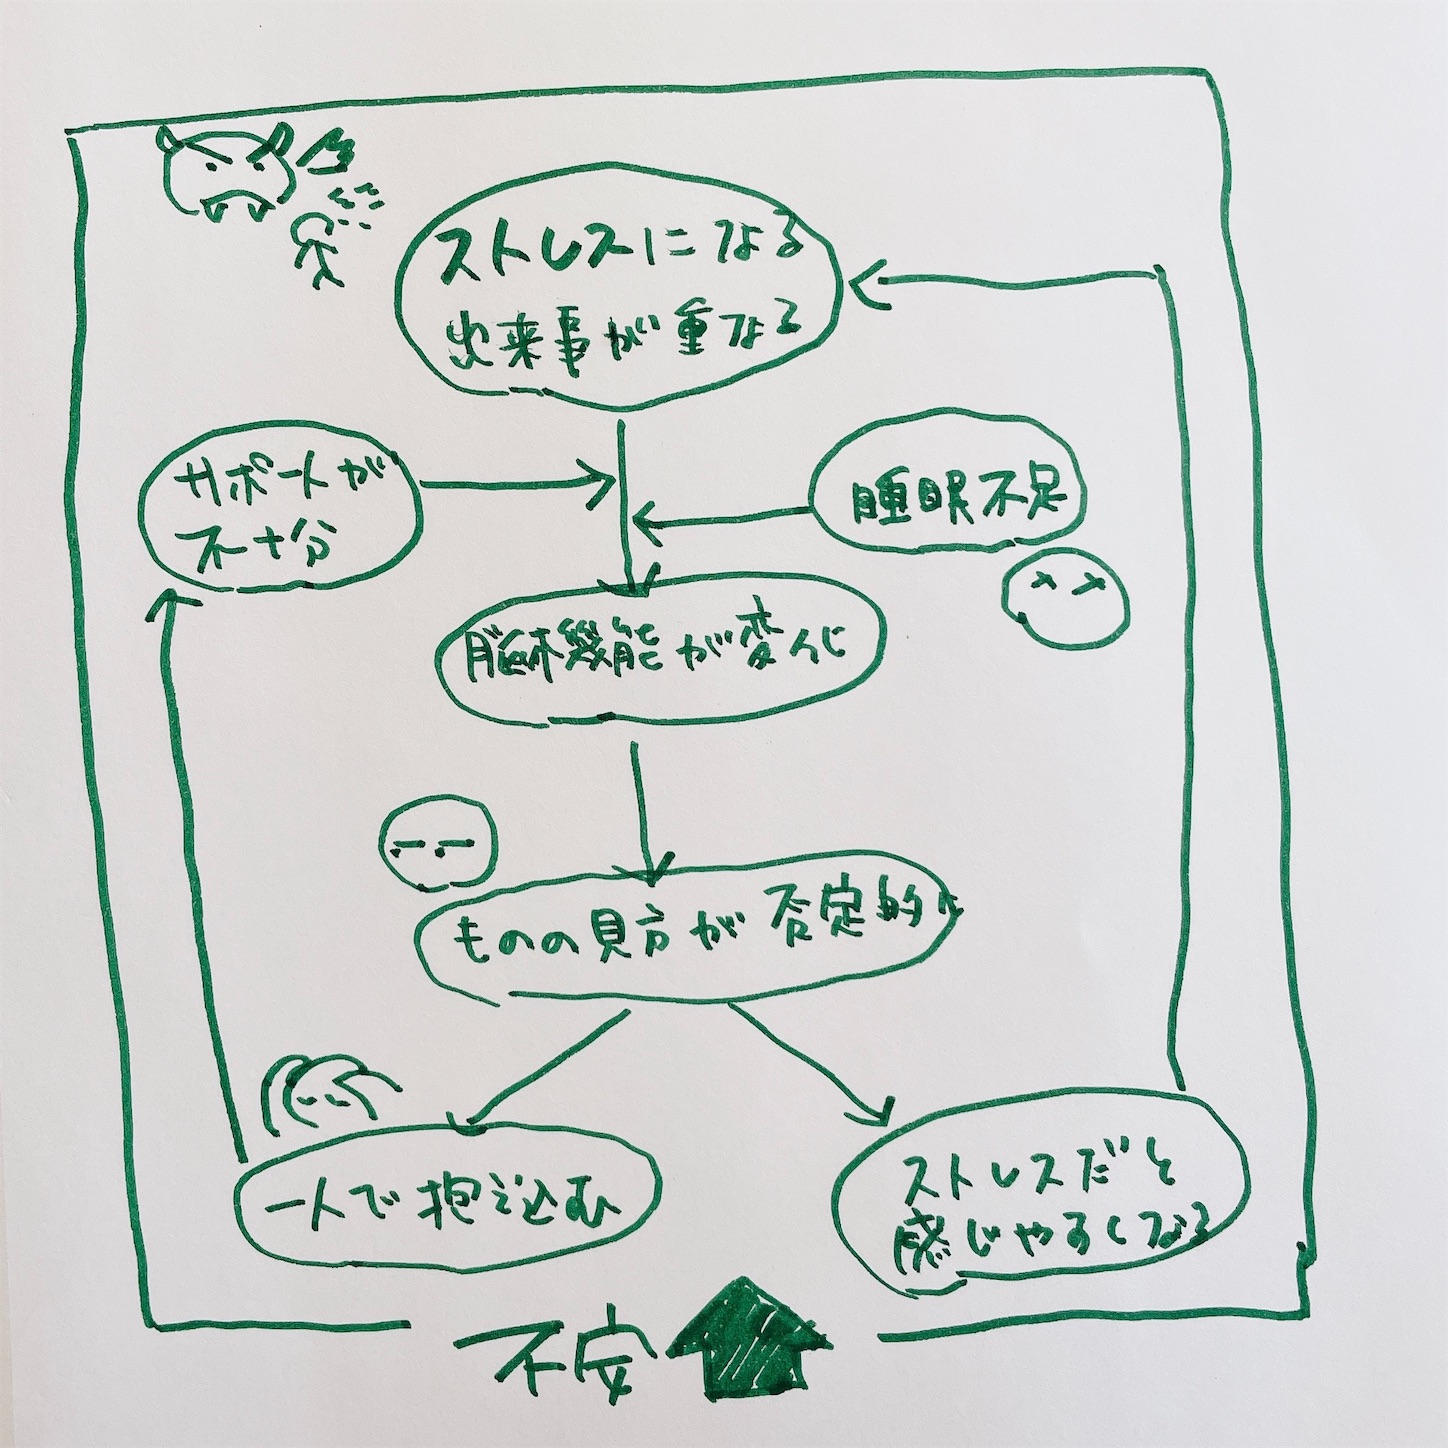 ストレスになる
出来事が重なる
サポートが
不十分
睡眠不足
脳機能が変化
ものの見方が否定的に
一人で抱え込む
ストレスだと
感じやすくなる
不安